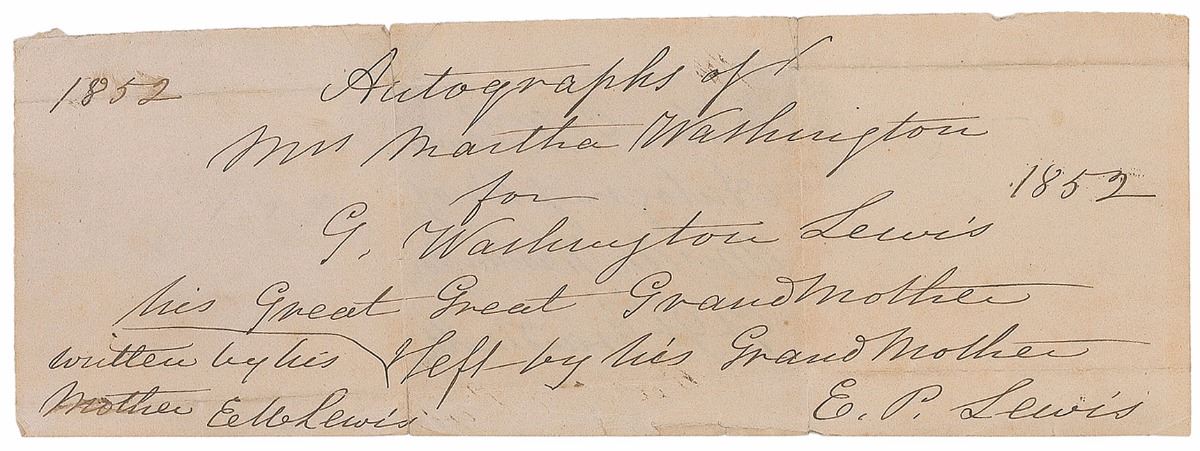 1852
Autographs of
Mrs Martha Washington
for
1852
G. Washington Lewis
his Great Great GrandMother
written by his & left by his GrandMother
Mother E M Lewis E. P. Lewis